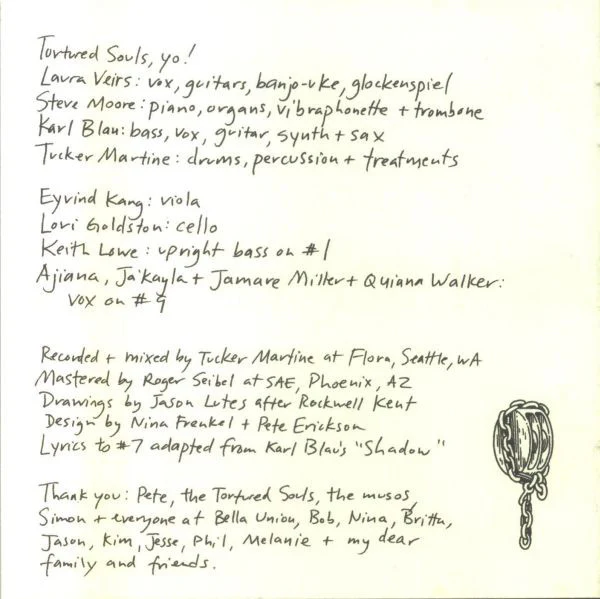 Tortured Souls, yo!
Laura Veirs: vox, guitars, banjo-uke, glockenspiel
Steve Moore: piano, organs, vibraphonette + trombone
Karl Blau: bass, vox, guitar, synth + sax
Tucker Martine: drums, percussion + treatments
Eyvind Kang: viola
Lori Goldston: cello
Keith Lowe: upright bass on #1
Ajiana, Ja'kayla + Jamare Miller + Quiana Walker:
vox on #9
Recorded + mixed by Tucker Martine at Flora, Seattle, WA
Mastered by Roger Seibel at SAE, Phoenix, AZ
Drawings by Jason Lutes after Rockwell Kent
Design by Nina Frenkel + Pete Erickson
Lyrics to #7 adapted from Karl Blau's "Shadow"
Thank you: Pete, the Tortured Souls, the musos,
Simon + everyone at Bella Union, Bob, Nina, Britta,
Jason, Kim, Jesse, Phil, Melanie + my dear
family and friends.